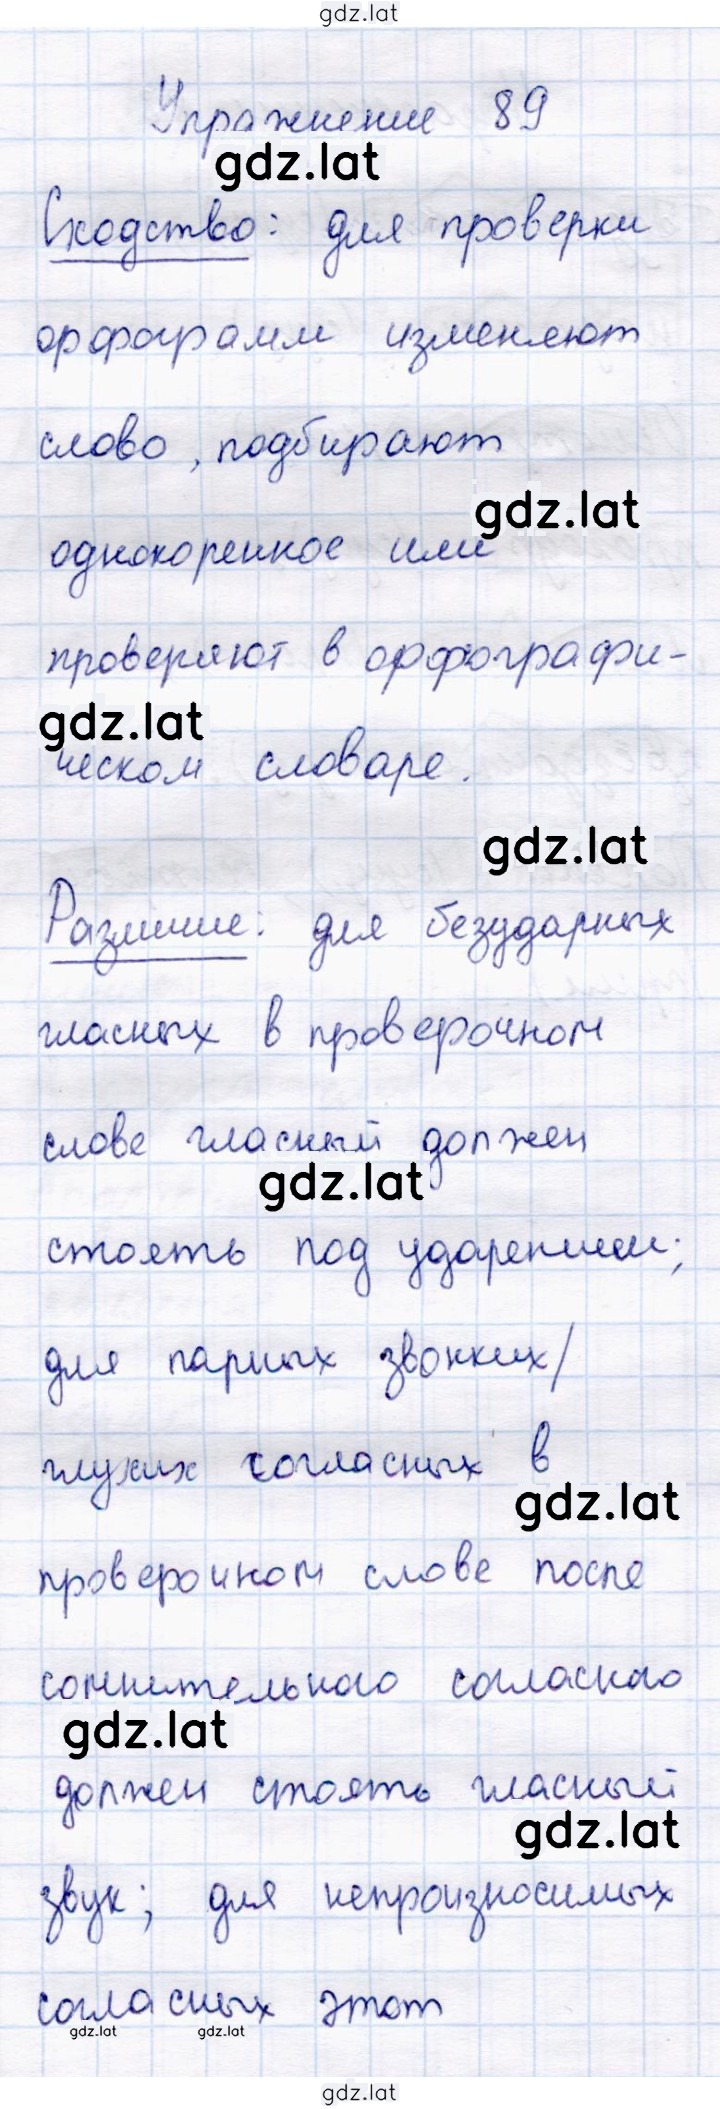 gdz.lat
Упражнение 89
gdz.lat
Сходство: для проверки
орфограмм изменяют
слово, подбирают
gdz.lat
однокоренное или
проверяют в орфографи-
gdz.lat
ческом словаре.
gdz.lat
Различие: для безударных
гласных в проверочном
слове гласный должен
gdz.lat
стоять под ударением;
для парных звонких/
глухих согласных в
gdz.lat
проверочном слове после
сомнительного согласного
gdz.lat
должен стоять гласный
gdz.lat
звук; для непроизносимых
согласных этот
gdz.lat gdz.lat
gdz.lat